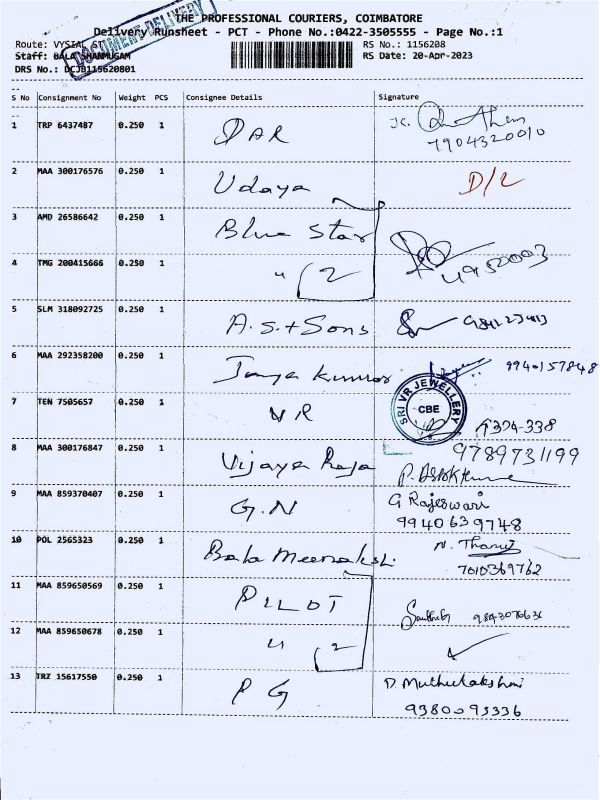 THE PROFESSIONAL COURIERS, COIMBATORE
DOCUMENT DELIVERY
Delivery Runsheet - PCT - Phone No.:0422-3505555 - Page No.:1
Route: VYSIAL ST
RS No.: 1156208
Staff: BALA SHANMUGAM
RS Date: 20-Apr-2023
DRS No.: DCJB115620801
S No Consignment No Weight PCS Consignee Details Signature
1 TRP 6437487 0.250 1 DAR
7904320010
2 MAA 300176576 0.250 1 Udaya D/L
3 AMD 26586642 0.250 1 Blue Star
4 TMG 200415666 0.250 1 " 2
5 SLM 318092725 0.250 1 A.S.+Sons
6 MAA 292358200 0.250 1 Jaya Kumar 9940157848
7 TEN 7505657 0.250 1 VR
SRI VR JEWELLERY
CBE
8 MAA 300176847 0.250 1 Vijaya Raja 9789731199
9 MAA 859370407 0.250 1 G.N G Rajeswari
9940639748
10 POL 2565323 0.250 1 Bala Meenakshi N.
7010369762
11 MAA 859650569 0.250 1 PILOT
12 MAA 859650678 0.250 1 " 2
13 TRZ 15617550 0.250 1 P G D. Muthulakshmi
9380093336